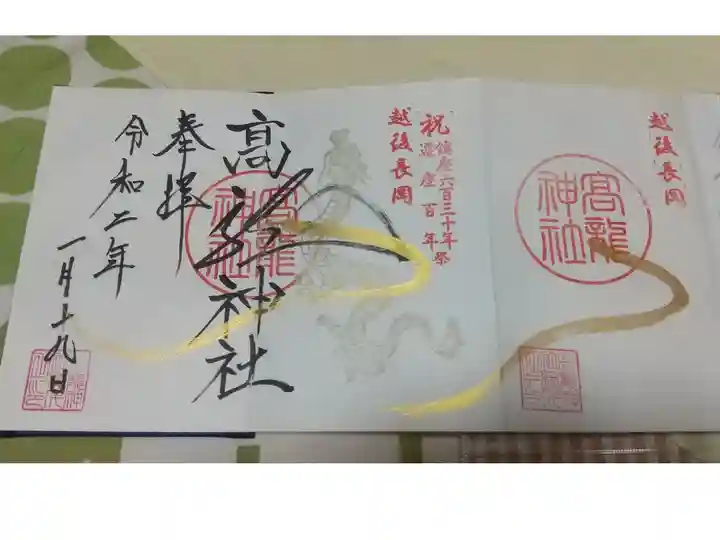 越後長岡
髙龍
神社
祝
鎮座六百三十年祭
遷座百年
越後長岡
髙龍神社
髙龍
神社
奉拝
令和二年
一月十九日